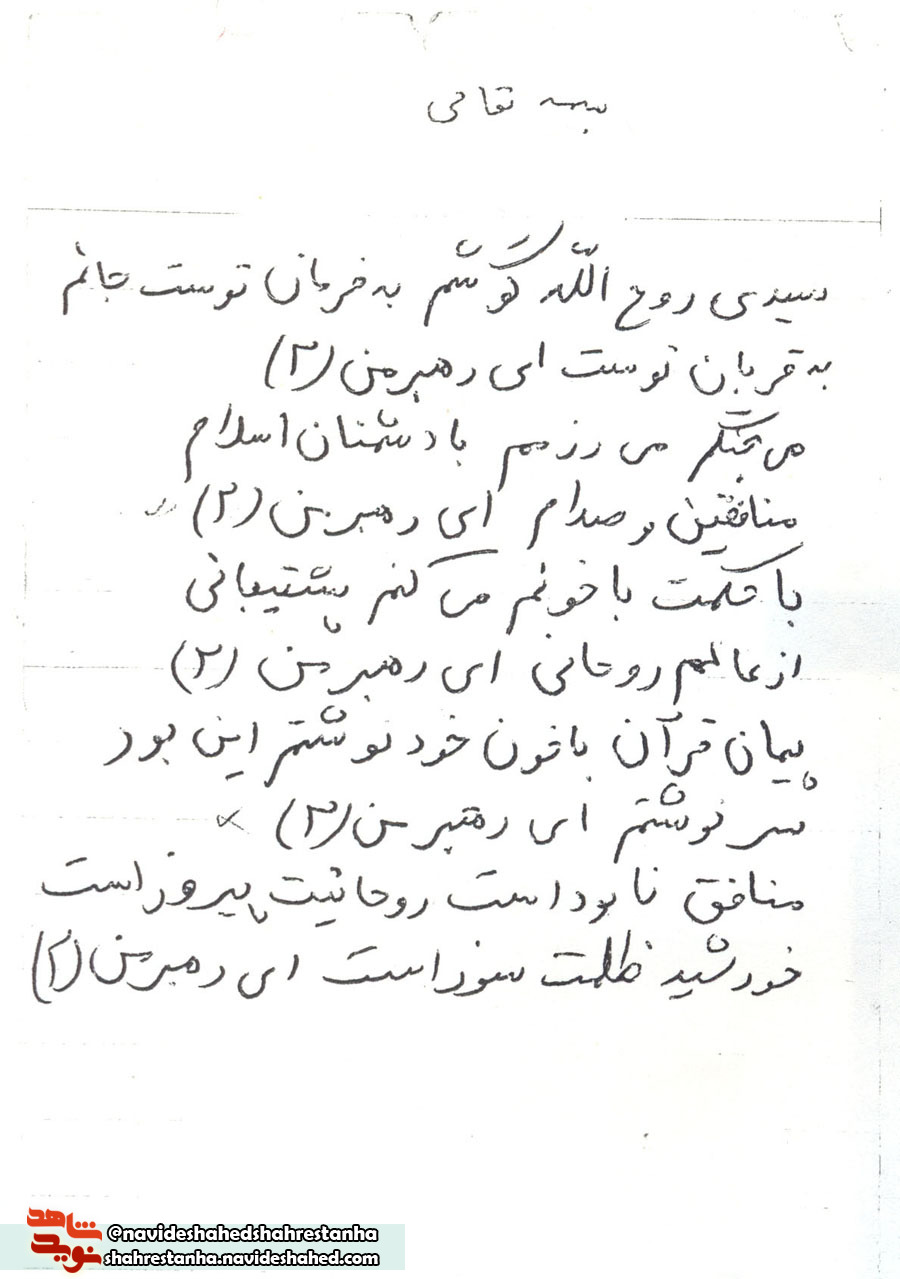 بسمه تعالی
سیدی روح الله گوشم به فرمان توست جانم
به قربان توست ای رهبر من (۲)
می جنگم می رزمم با دشمنان اسلام
منافقین و صدام ای رهبر من (۲)
با حکمت با خونم می کنم پشتیبانی
از عالم روحانی ای رهبر من (۲)
پیمان قرآن با خون خود نوشتم این بود
سر نوشتم ای رهبر من (۲)
منافق نابود است روحانیت پیروز است
خورشید ظلمت سوز است ای رهبر من (۲)
شاهد
نوید
@navideshahedshahrestanha
shahrestanha.navideshahed.com